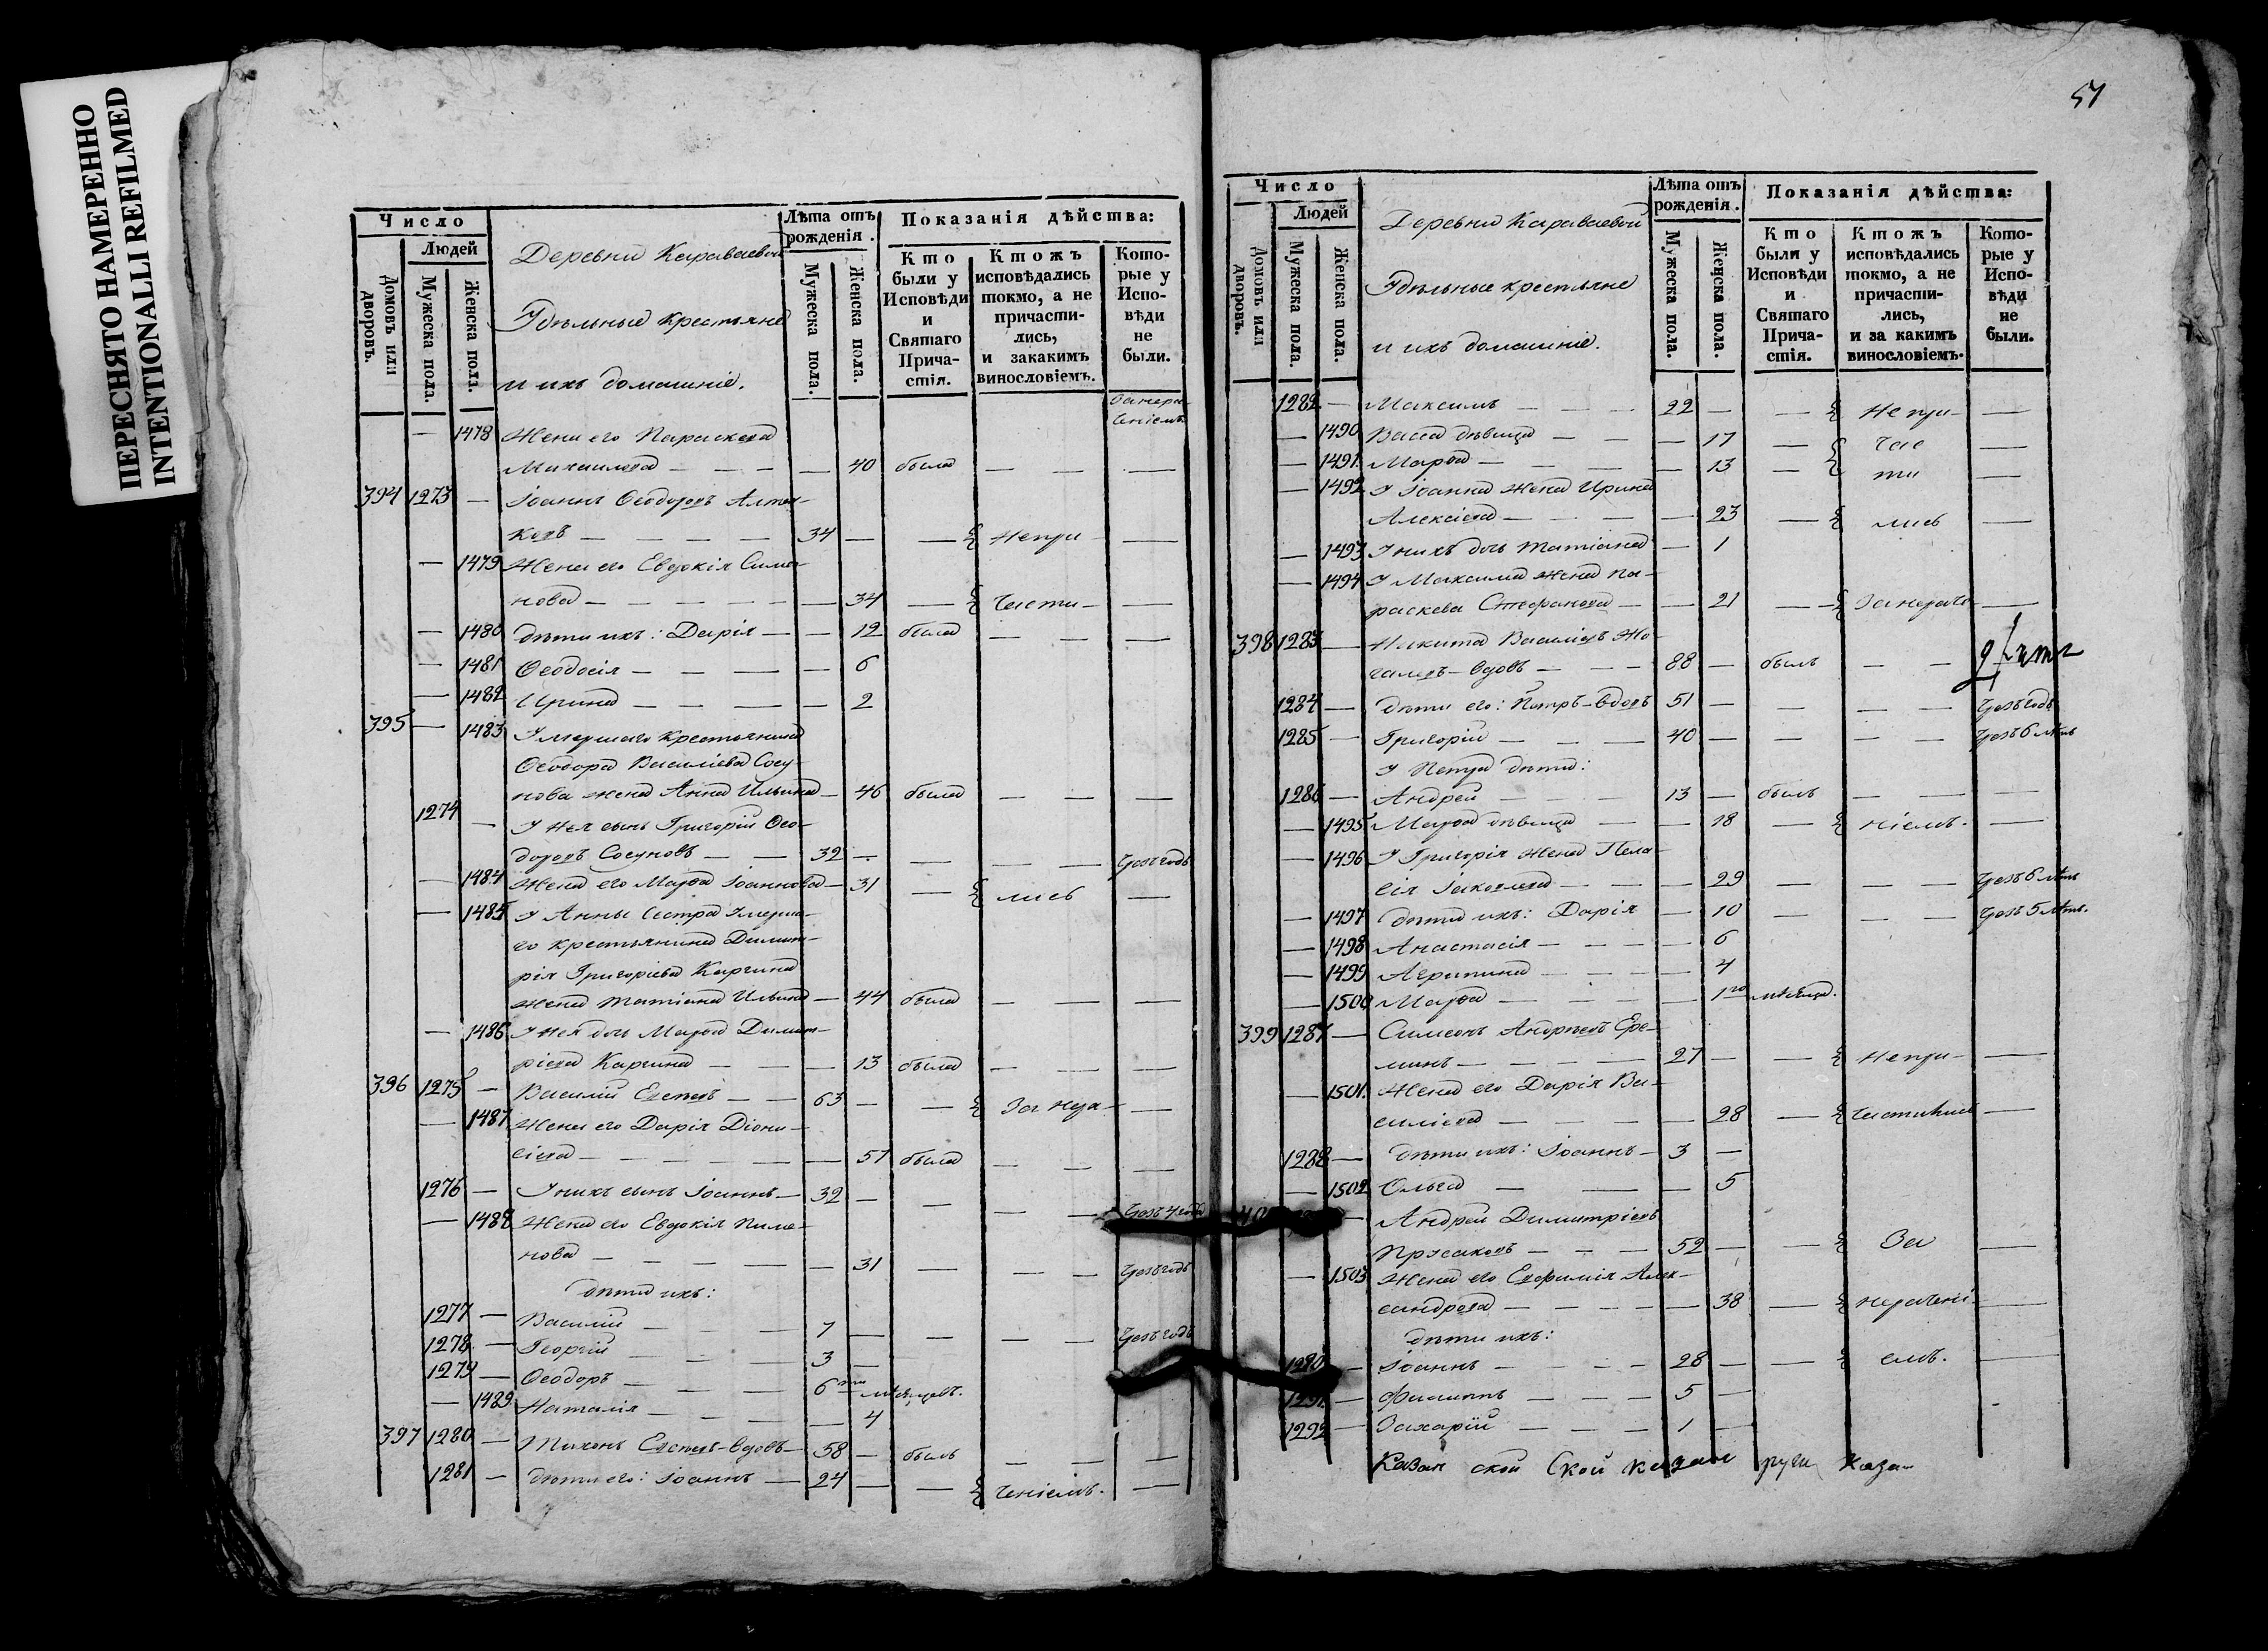 ПЕРЕСНЯТО НАМЕРЕННО
INTENTIONALLI REFILMED
Число
Людей
Домовъ или дворовъ.
Мужеска пола.
Женска пола.
Деревни Караваевой
Удѣльные крестьяне
и ихъ домашніе.
Лѣта отъ рожденія.
Мужеска пола.
Женска пола.
Показанія дѣйства:
Кто были у Исповѣди и Святаго Причастія.
Ктожъ исповѣдались токмо, а не причастились, и закакимъ винословіемъ.
Которые у Исповѣди не были.
— 1478 Жена его Параскева
Михаилова — — — — 40 была — — —
394 1273 — Іоаннъ Ѳеодоровъ
ковъ — — — — 34 — — Непри- —
— 1479 Жена его Евдокія Симо-
нова — — — — — 34 — части- —
— 1480 дѣти ихъ: Дарія — — 12 была — — —
— 1481 Ѳеодосія — — — — 6
— 1482 Ирина — — — — 2
395 — 1483 Умершаго крестьянина
Ѳеодора Василіева Сосу-
нова жена Анна Ильина — 46 была — — —
1274 — У нея сынъ Григорій Ѳео-
доровъ Сосуновъ — — 32 — — — — Чрезъ годъ
— 1484 Жена его Марѳа Іоаннова — 31 — лись —
— 1485 У Анны сестра умерша-
го крестьянина Димит-
рія Григоріева Каргина
жена Татіана Ильина — 44 была — — —
— 1486 У нея дочь Марѳа Димит-
ріева Каргина — — — 13 была — — —
396 1275 — Василій — — 63 — — За нера- —
— 1487 Жена его Дарія Діони-
сіева — — — — — 57 была — — —
1276 — У нихъ сынъ Іоаннъ — 32 — — — — Чрезъ 4 года
— 1488 Жена его Евдокія Пиме-
нова — — — — — 31 — — — Чрезъ годъ
дѣти ихъ:
1277 — Василій — — — 7 — — — — Чрезъ годъ
1278 — Георгій — — — 3 —
1279 — Ѳеодоръ — — — 6ти мѣсяцовъ.
— 1489 Наталія — — — — 4
397 1280 — Тихонъ — вдовъ — 58 — былъ — — —
1281 — дѣти его: Іоаннъ — 24 — — ченіемъ. —
51
Число
Людей
Домовъ или дворовъ.
Мужеска пола.
Женска пола.
Деревни Караваевой
Удѣльные крестьяне
и ихъ домашніе.
Лѣта отъ рожденія.
Мужеска пола.
Женска пола.
Показанія дѣйства:
Кто были у Исповѣди и Святаго Причастія.
Ктожъ исповѣдались токмо, а не причастились, и за какимъ винословіемъ.
Которые у Исповѣди не были.
1282 — Максимъ — — — 22 — — Непри- —
— 1490 Васса дѣвица — — — 17 — час —
— 1491 Марѳа — — — — 13 — ти —
— 1492 У Іоанна жена Ирина
Алексіева — — — — 23 — лись —
— 1493 У нихъ дочь Татіана — 1
— 1494 У Максима жена Па-
раскева Стефанова — — 21 — За нераче- —
398 1283 — Никита Василіевъ
— вдовъ — — 88 — былъ — —
1284 — дѣти его: Петръ — вдовъ 51 — — — — Чрезъ годъ
1285 — Григорій — — — 40 — — — — Чрезъ 6 лѣтъ
У Петра дѣти:
1286 — Андрей — — — 13 — былъ — — —
— 1495 Марѳа дѣвица — — 18 — ніемъ. —
— 1496 У Григорія жена Пела-
гія Іаковлева — — — 29 — — — Чрезъ 6 лѣтъ
— 1497 дѣти ихъ: Дарія — 10 — — — Чрезъ 5 лѣтъ.
— 1498 Анастасія — — — — 6
— 1499 Агрипина — — — — 4
— 1500 Марѳа — — — — 1го мѣсяца.
399 1287 — Симеонъ Андреевъ Ере-
минъ — — — — 27 — — Непри- —
— 1501 Жена его Дарія Ва-
силіева — — — — 28 —
1288 — дѣти ихъ: Іоаннъ — 3 —
— 1502 Ольга — — — 5
Андрей Димитріевъ
— — — 52 — — За —
— 1503 Жена его Евфимія Алек-
сандрова — — — — 38 — нерачені- —
дѣти ихъ:
1290 — Іоаннъ — — — 28 — — емъ. —
1291 — Филиппъ — — — 5 —
1292 — Захарій — — — 1 —
Казан ской Ской